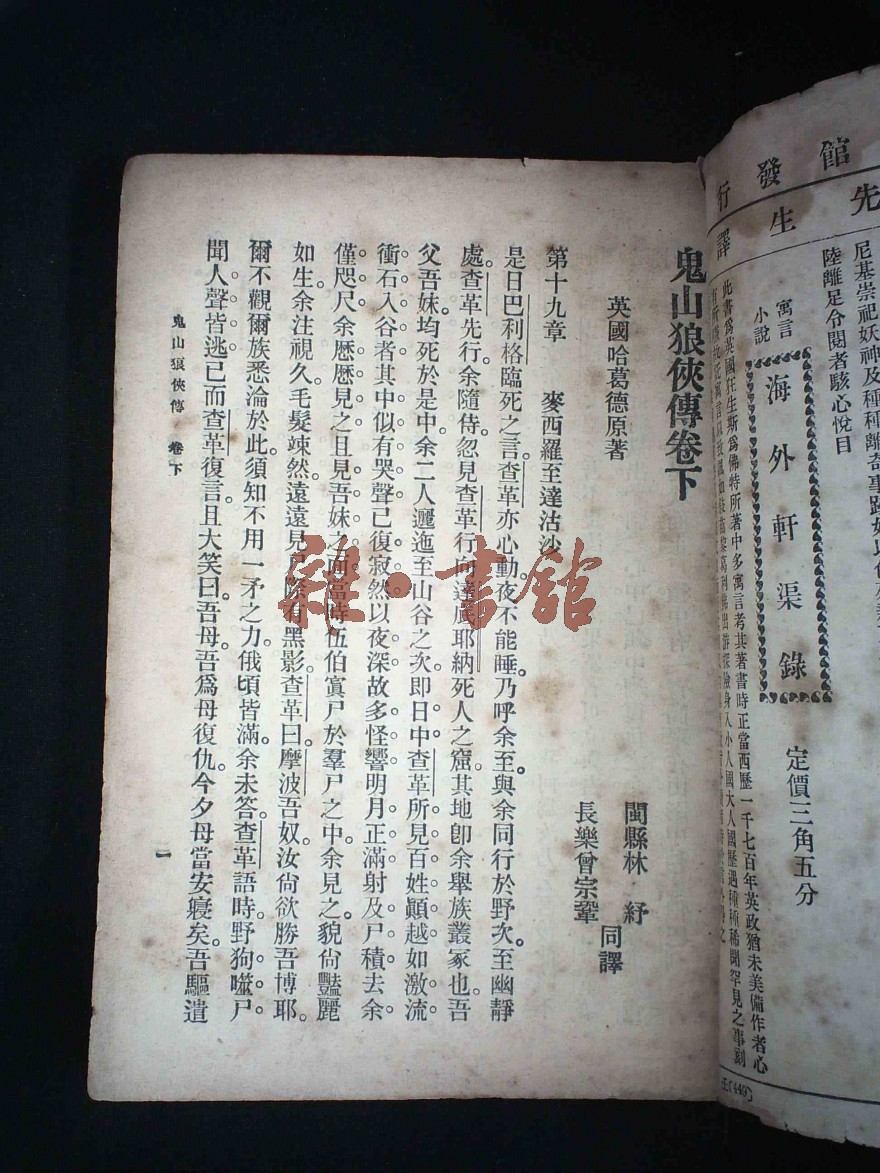 館發行
先生譯
尼基崇祀妖神及種種離奇事蹟
陸離足令閱者駭心悅目
寓言
小說
海外軒渠錄
定價三角五分
此書爲英國狂生斯爲佛特所著中多寓言考其著書時正當西歷一千七百年英政猶未美備作者心
入小人國大人國歷遇種種稀聞罕見之事刻
鬼山狼俠傳卷下
英國哈葛德原著
閩縣林紓
長樂曾宗鞏
同譯
第十九章 麥西羅至達沽沙
是日巴利格臨死之言查革亦心動夜不能睡。乃呼余至。與余同行於野次。至幽靜
處。查革先行。余隨侍。忽見查革行向達底耶納死人之窟。其地卽余舉族叢冢也。吾
父吾妹。均死於是中。余二人邐迤至山谷之次。卽日中查革所見百姓顚越如激流
衝石入谷者。其中似有哭聲。已復寂然。以夜深故多怪響。明月正滿。射及尸積。去余
僅咫尺。余歷歷見之。且見吾妹之面。當時伍伯寘尸於羣尸之中。余見之。貌尙豔麗
如生。余注視久。毛髮竦然。遠遠見尸際有黑影。查革曰。摩波吾奴。汝尙欲勝吾博耶。
爾不觀爾族悉淪於此。須知不用一矛之力。俄頃皆滿。余未答。查革語時。野狗噬尸
聞人聲皆逃。已而查革復言。且大笑曰。吾母。吾爲母復仇。今夕母當安寢矣。吾驅遣
鬼山狼俠傳 卷下
一
雜·書館